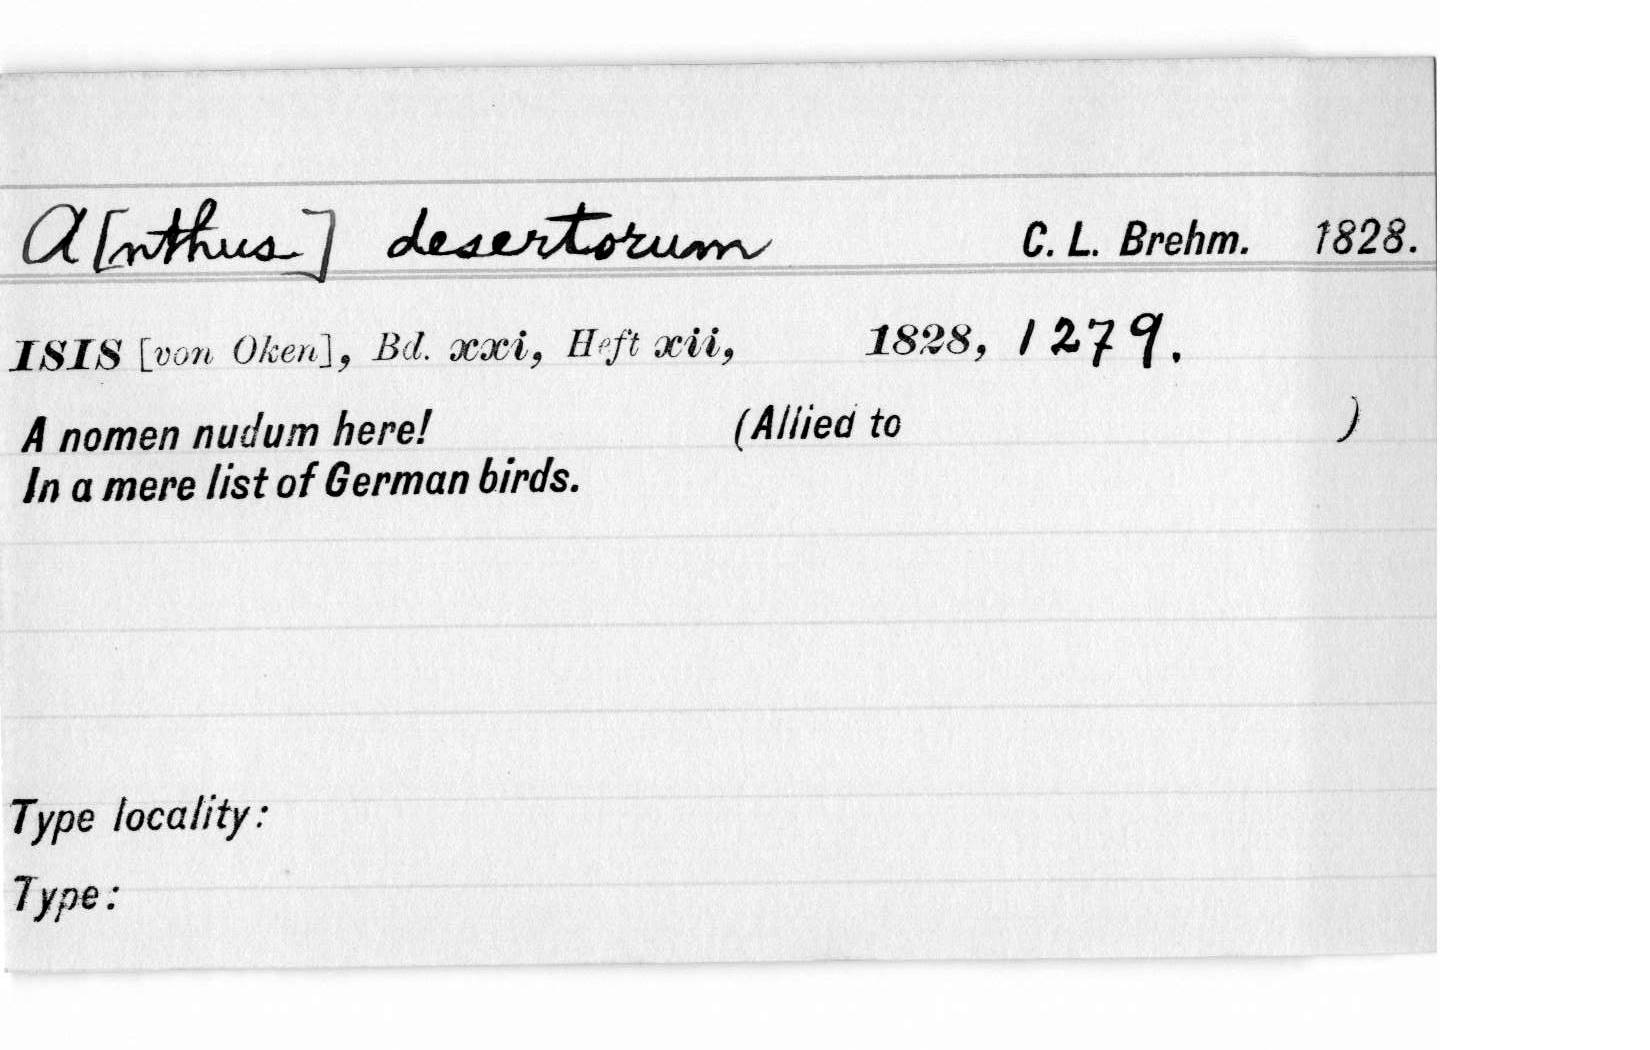 A[nthus] desertorum C. L. Brehm. 1828.
ISIS [von Oken], Bd. xxi, Heft xii, 1828, 1279.
A nomen nudum here! (Allied to )
In a mere list of German birds.
Type locality:
Type: